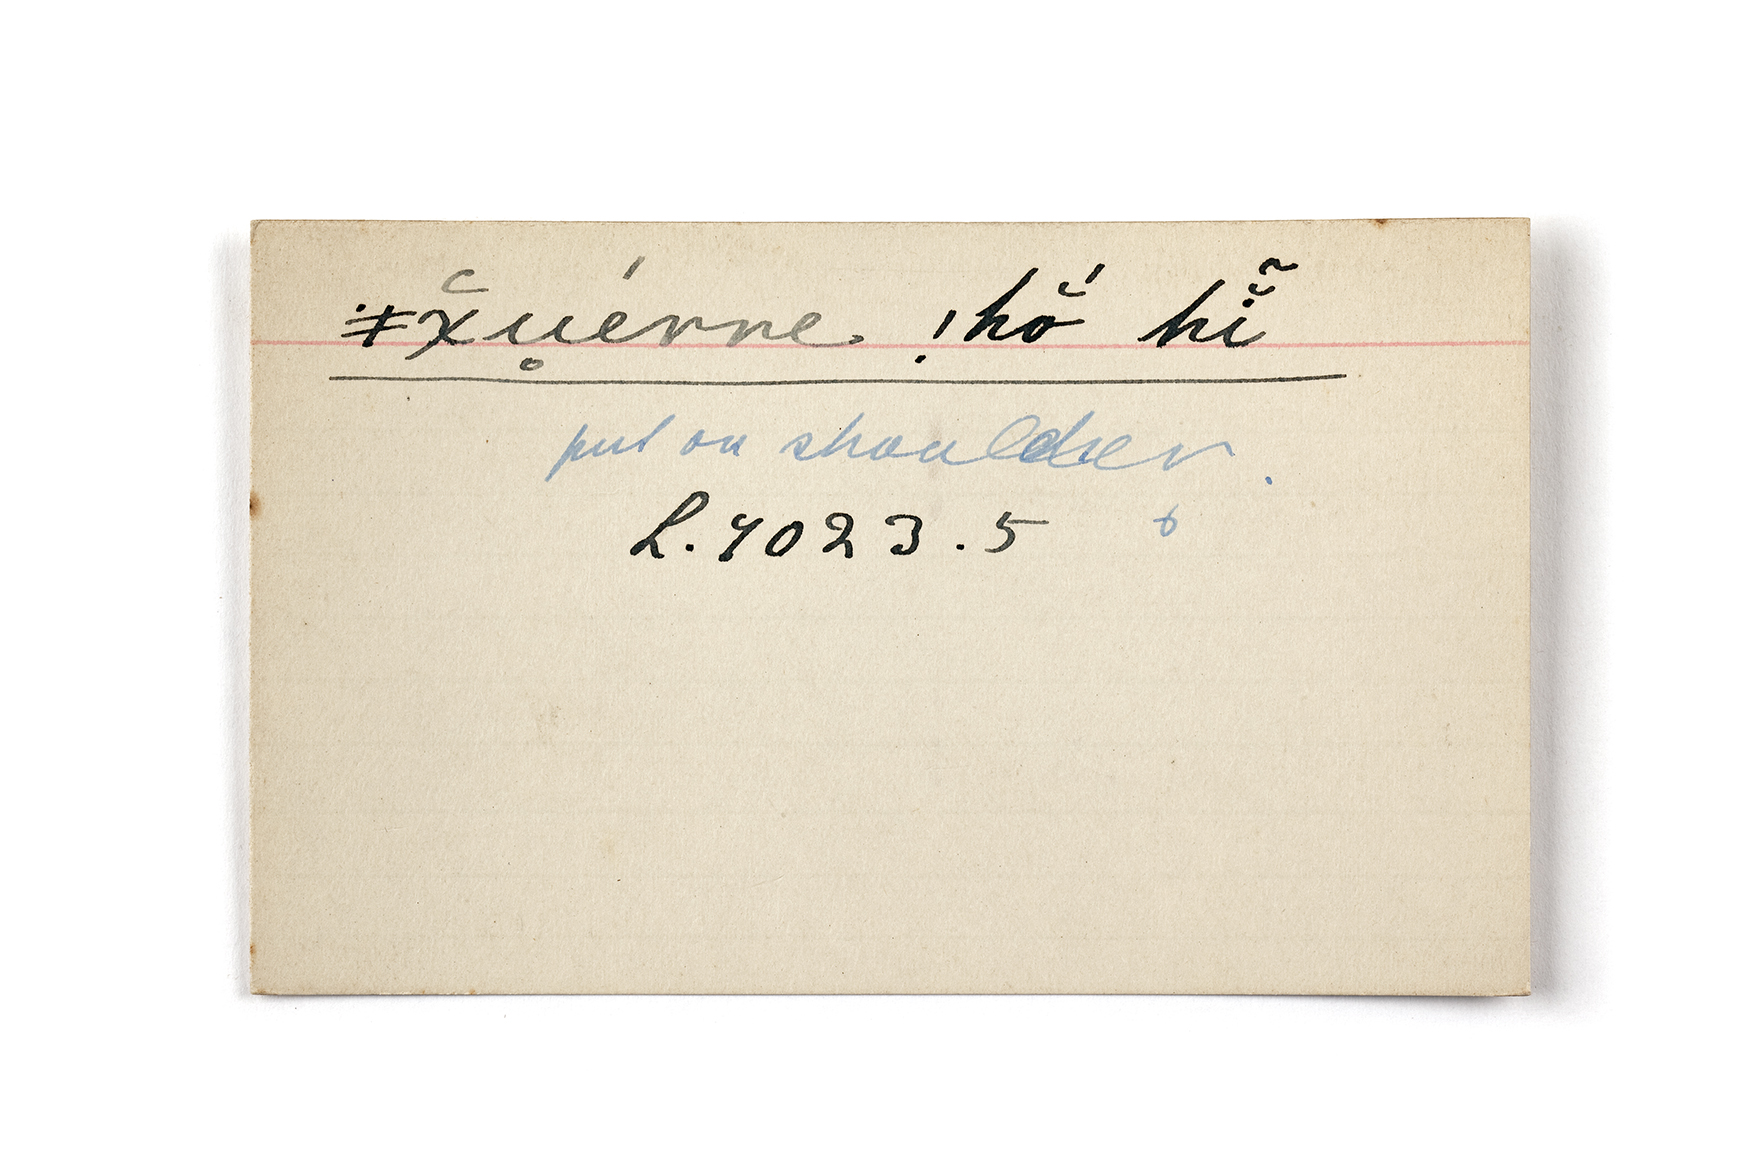 ǂχ̆u̥érre. !hŏ́ hĭ̃
put on shoulder.
L.4023.5